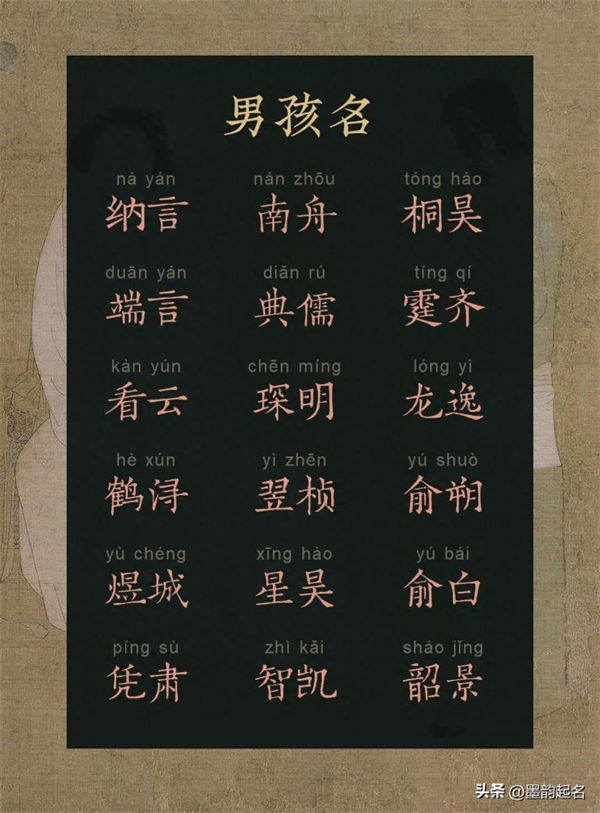 男孩名
nà yán nán zhōu tóng hào
纳言 南舟 桐昊
duān yán diān rú tíng qí
端言 典儒 霆齐
kàn yún chēn míng lóng yì
看云 琛明 龙逸
hè xún yì zhēn yú shuò
鹤浔 翌桢 俞朔
yù chéng xīng hào yú bái
煜城 星昊 俞白
píng sù zhì kǎi sháo jǐng
凭肃 智凯 韶景
头条 @墨韵起名